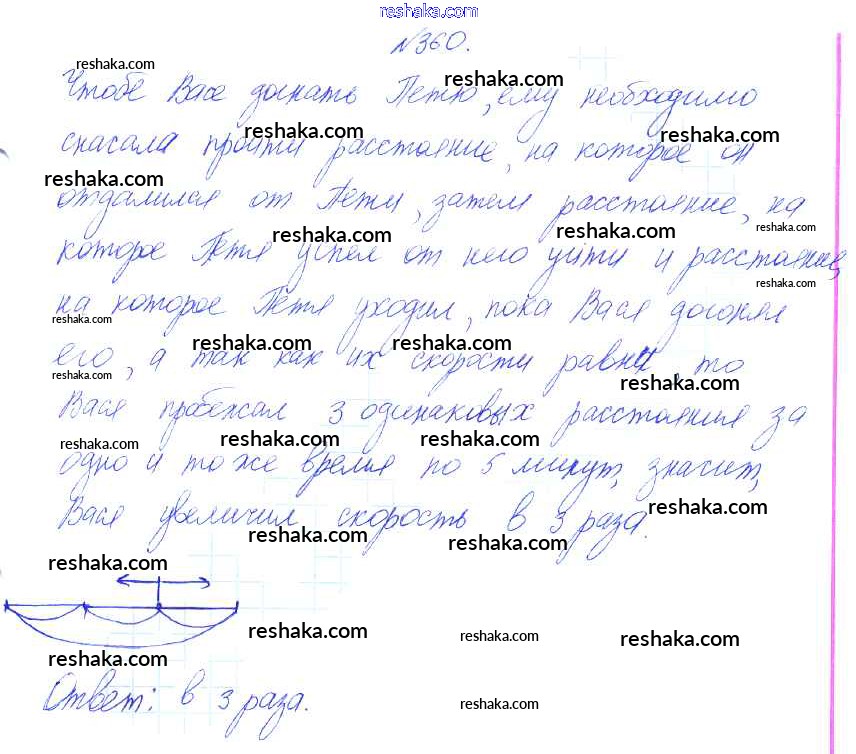 reshaka.com
№360.
reshaka.com
Чтобе Васе догнать Петю, ему необходимо
reshaka.com
reshaka.com reshaka.com
сначала пройти расстояние, на которое он
reshaka.com
отдалился от Пети, затем расстояние, на
reshaka.com reshaka.com reshaka.com
которое Петя успел от него уйти и расстояние,
на которое Петя уходил, пока Вася догонял
reshaka.com
reshaka.com reshaka.com
его, а так как их скорости равны, то
reshaka.com reshaka.com
Вася пробежал 3 одинаковых расстояния за
reshaka.com reshaka.com reshaka.com
одно и то же время по 5 минут, значит,
Вася увеличил скорость в 3 раза.
reshaka.com
reshaka.com reshaka.com
reshaka.com
reshaka.com reshaka.com reshaka.com
reshaka.com
Ответ: в 3 раза.
reshaka.com